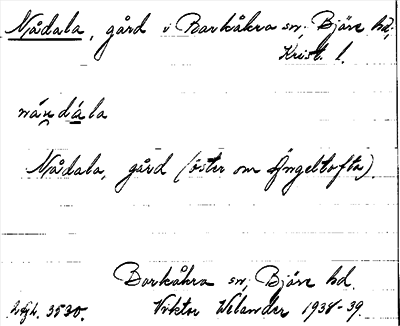 Nådala, gård i Barkåkra sn; Bjäre hd;
Krist. l.
nǻndála
Nådala, gård (öster om Ängeltofta).
Barkåkra sn; Bjäre hd.
Viktor Welander 1938-39.